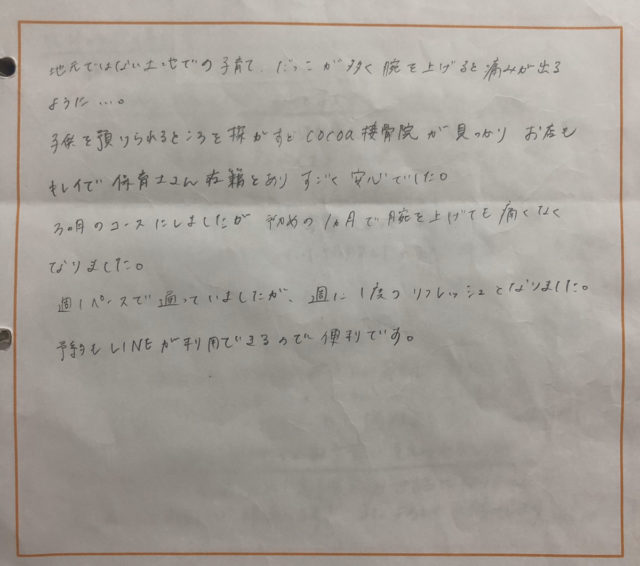 地元ではない土地での子育て、だっこが多く腕を上げると痛みが出る
ように…。
子供を預けられるところを探がすとcocoa接骨院が見つかり お店も
キレイで保育士さん在籍とあり すごく安心でした。
3ヶ月のコースにしましたが 初めの1ヵ月で腕を上げても痛くなく
なりました。
週1ペースで通っていましたが、週に1度のリフレッシュとなりました。
予約もLINEが利用できるので便利です。